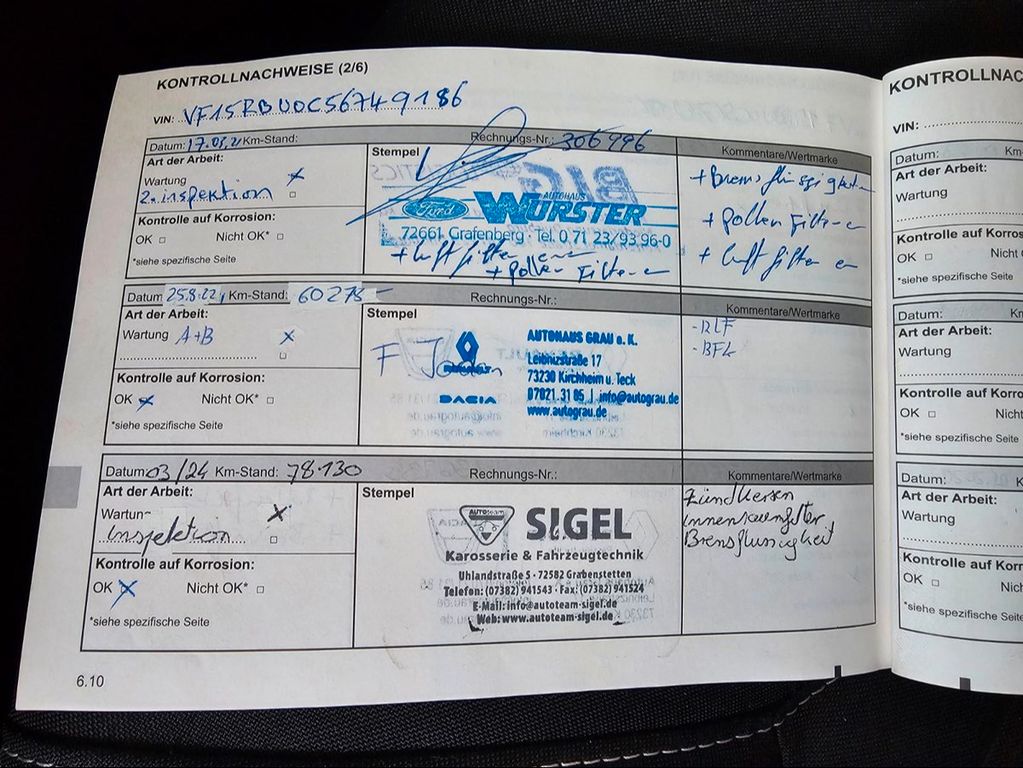 KONTROLLNACHWEISE (2/6)
VIN: VF15RBU0C56749186
Datum: 17.05.21 Km-Stand: Rechnungs-Nr.: 306996 Kommentare/Wertmarke
Art der Arbeit:
Wartung x
2. inspektion
Kontrolle auf Korrosion:
OK □ Nicht OK* □
*siehe spezifische Seite
Stempel
AUTOHAUS
Ford WURSTER
72661 Grafenberg · Tel. 0 71 23/93 96-0
+ Luft filter
+ pollen Filter
+ Bremsflüssigkeit
+ pollen Filter
+ Luft filter
Datum 25.8.22 Km-Stand: 60275 Rechnungs-Nr.: Kommentare/Wertmarke
Art der Arbeit:
Wartung A+B x
Kontrolle auf Korrosion:
OK x Nicht OK* □
*siehe spezifische Seite
Stempel
RENAULT
DACIA
AUTOHAUS GRAU e. K.
Leibnizstraße 17
73230 Kirchheim u. Teck
07021.31 85 | info@autograu.de
www.autograu.de
- BFL
Datum 03/24 Km-Stand: 78.130 Rechnungs-Nr.: Kommentare/Wertmarke
Art der Arbeit:
Wartun x
Inspektion
Kontrolle auf Korrosion:
OK x Nicht OK* □
*siehe spezifische Seite
Stempel
AUTOteam SIGEL
Karosserie & Fahrzeugtechnik
Uhlandstraße 5 · 72582 Grabenstetten
Telefon: (07382) 941543 · Fax: (07382) 941524
E-Mail: info@autoteam-sigel.de
Web: www.autoteam-sigel.de
Zündkerzen
Innenraumfilter
Bremsflüssigkeit
6.10
KONTROLLNAC
VIN:
Datum: Km-
Art der Arbeit:
Wartung
Kontrolle auf Korros
OK □ Nicht
*siehe spezifische Seite
Datum: Km
Art der Arbeit:
Wartung
Kontrolle auf Korro
OK □ Nicht
*siehe spezifische Seite
Datum: K
Art der Arbeit:
Wartung
Kontrolle auf Korr
OK □ Nic
*siehe spezifische Se